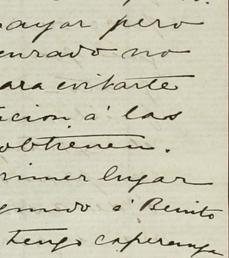 mayor pero
curado no
para evitarte
ción á las
obtienen.
primer lugar
gundo á Benito
tengo esperanza